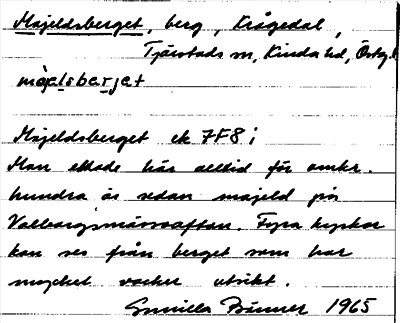 Majeldsberget, berg, Krågedal,
Tjärstads sn, Kinda hd, Östg.
màjelsbærjet
Majeldsberget ek 7F8i
Man eldade här alltid för omkr.
hundra år sedan majeld på
Valborgsmässoaftan. Fyra kyrkor
kan ses från berget som har
mycket vacker utsikt.
Gunilla Bänner 1965